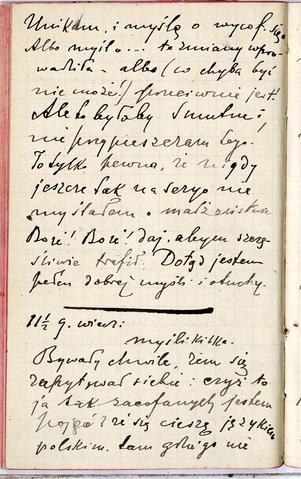 Unikam, i myślę o wycof. się.
Albo myślę... te zmiany wpro-
wadziła - albo (co chyba być
nie może!) przeciwnie jest!
Ale to byłoby smutne i,
nie przypieszczam tego.
To tylko pewna, że nigdy
jeszcze tak na seryo nie
myślałem o małżeństwie
Boże! Boże! daj, abym szczę-
śliwie trafił. Dotąd jestem
pełen dobrej myśli i otuchy.
11½ g. wiecz:
myśli kilka.
Bywały chwile, żem się
zapytywał siebie: czyż to
ja tak zacofanych jestem
pojęć? że się cieszę językiem
polskim. tam gdzie go nie